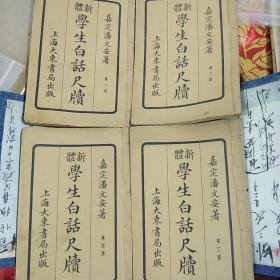 嘉定潘文安著
新體 學生白話尺牘 第一冊
上海大東書局出版
嘉定潘文安著
新體 學生白話尺牘 第二冊
上海大東書局出版
嘉定潘文安著
新體 學生白話尺牘 第四冊
上海大東書局出版
嘉定潘文安著
新體 學生白話尺牘 第三冊
上海大東書局出版